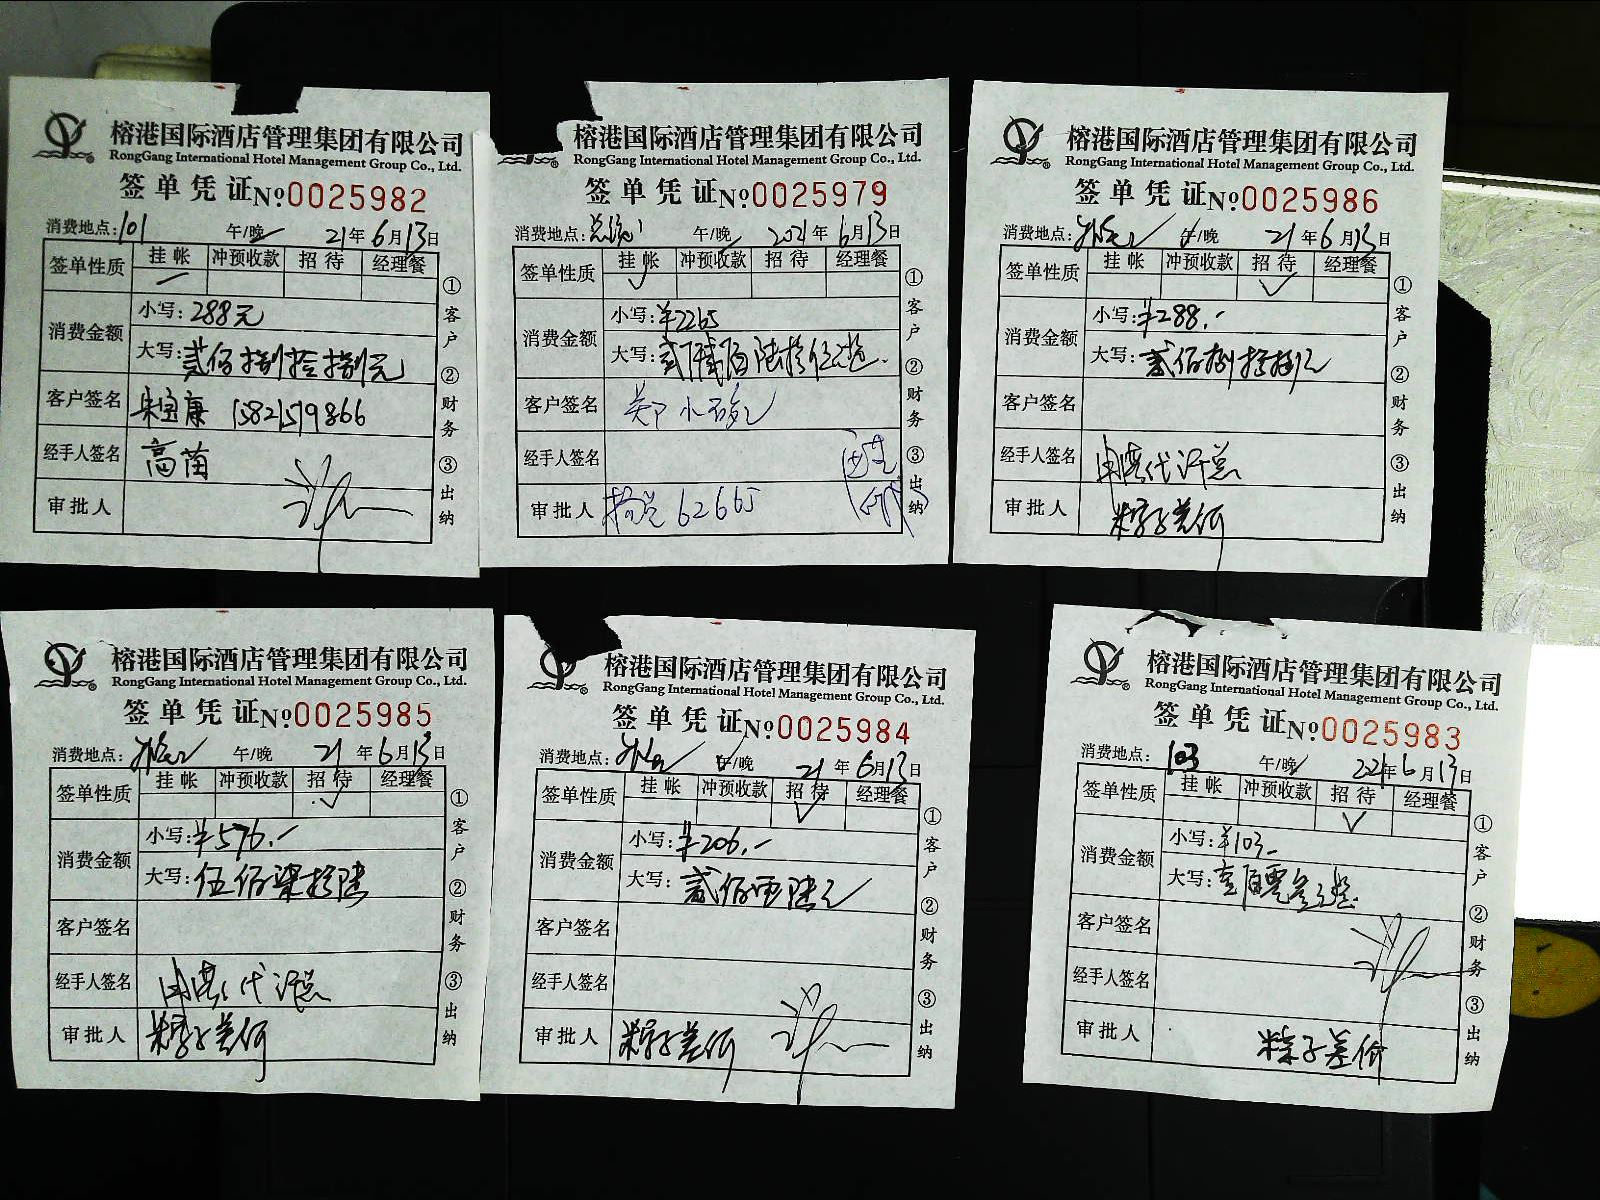 榕港国际酒店管理集团有限公司
RongGang International Hotel Management Group Co., Ltd.
签单凭证 No 0025982
消费地点: 101 午/晚 21年6月13日
签单性质 挂帐 冲预收款 招待 经理餐
消费金额 小写: 288元
大写: 贰佰捌拾捌元
客户签名 宋宝康 15821579866
经手人签名 高苗
审批人
①客户 ②财务 ③出纳
榕港国际酒店管理集团有限公司
RongGang International Hotel Management Group Co., Ltd.
签单凭证 No 0025979
消费地点: 午/晚 2021年6月13日
签单性质 挂帐 冲预收款 招待 经理餐
消费金额 小写: ¥2265
大写: 贰仟贰佰陆拾伍元整.
客户签名 郑小
经手人签名
审批人 62665
①客户 ②财务 ③出纳
榕港国际酒店管理集团有限公司
RongGang International Hotel Management Group Co., Ltd.
签单凭证 No 0025986
消费地点: 午/晚 21年6月13日
签单性质 挂帐 冲预收款 招待 经理餐
消费金额 小写: ¥288.-
大写: 贰佰捌拾捌元
客户签名
经手人签名 代许总
审批人 粽子差价
①客户 ②财务 ③出纳
榕港国际酒店管理集团有限公司
RongGang International Hotel Management Group Co., Ltd.
签单凭证 No 0025985
消费地点: 午/晚 21年6月13日
签单性质 挂帐 冲预收款 招待 经理餐
消费金额 小写: ¥576.-
大写: 伍佰柒拾陆
客户签名
经手人签名 代许总
审批人 粽子差价
①客户 ②财务 ③出纳
榕港国际酒店管理集团有限公司
RongGang International Hotel Management Group Co., Ltd.
签单凭证 No 0025984
消费地点: 午/晚 21年6月13日
签单性质 挂帐 冲预收款 招待 经理餐
消费金额 小写: ¥206.-
大写: 贰佰零陆元
客户签名
经手人签名
审批人 粽子差价
①客户 ②财务 ③出纳
榕港国际酒店管理集团有限公司
RongGang International Hotel Management Group Co., Ltd.
签单凭证 No 0025983
消费地点: 103 午/晚 2021年6月13日
签单性质 挂帐 冲预收款 招待 经理餐
消费金额 小写: ¥103.-
大写: 壹佰零叁元整.
客户签名
经手人签名
审批人 粽子差价
①客户 ②财务 ③出纳